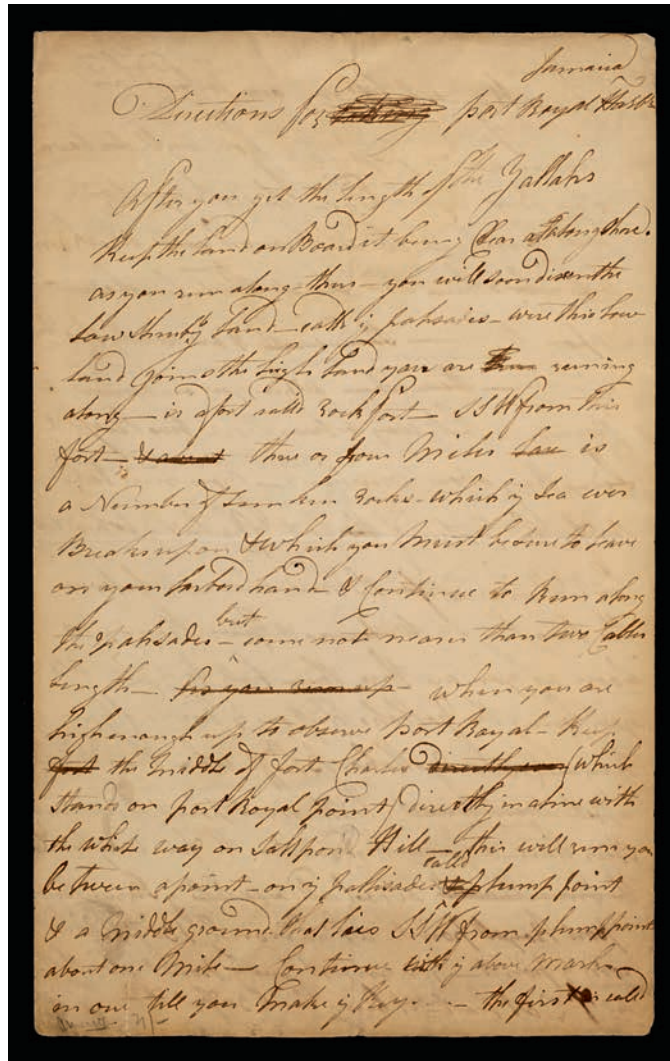 Jamaica
Directions for taking port Royal Harbr
After you get the length of the Yallahs
Keep the land on Board it being Clear all along shore.
as you run along thus – you will soon discern the
low shruby land – calld ye palisades – were this low
land joins the high land you are running
along – is a fort calld rock fort – SSW from this
fort – & about three or four Miles is
a Number of sunken rocks – which ye Sea ever
Breaks upon & which you Must be sure to leave
on your larbord hand & Continue to Run along
the palisades – but come not nearer than two Cables
length – when you are
high enough up to observe port Royal – keep
fort the Middle of fort Charles directly (which
stands on port Royal point) directly in a line with
the white way on Saltpond Hill – this will run you
between a point – on ye pallisades called plump point
& a Middle ground that lies SSW from plump point
about one Mile – Continue with ye above Marks
in one till you Make ye Keys – the first is called